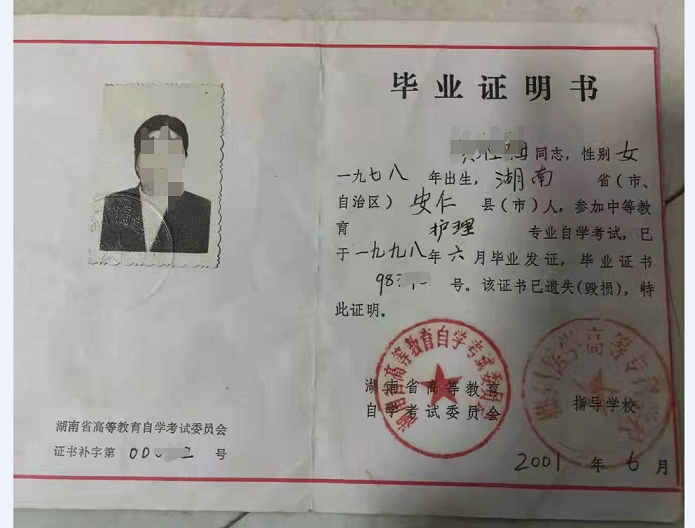 湖南省高等教育自学考试委员会
证书补字第 号
毕业证明书
同志，性别女
一九七八年出生，湖南省（市、
自治区）安仁县（市）人，参加中等教
育护理专业自学考试，已
于一九九八年六月毕业发证，毕业证书
98 号。该证书已遗失(毁损)，特
此证明。
湖南省高等教育自学考试委员会
湖南省高等教育
自学考试委员会
指导学校
2001年6月